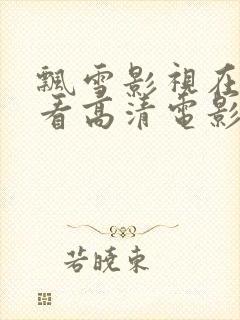 飄雪影視在
看高清電影
若曉東